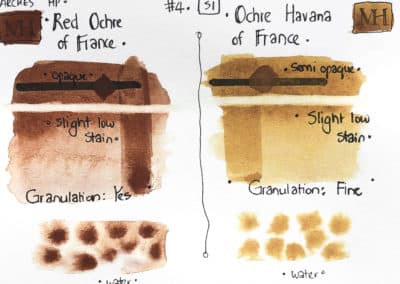 ARCHES HP.
#4. S1
MH
Red Ochre
of France.
• opaque •
• Slight low
stain •
Granulation: Yes
• water •
• Ochre Havana
of France.
MH
• Semi opaque •
Slight low
Stain •
• Granulation: Fine •
• water •